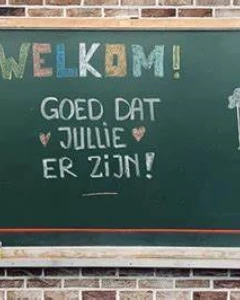 WELKOM!
GOED DAT
JULLIE
ER ZIJN!